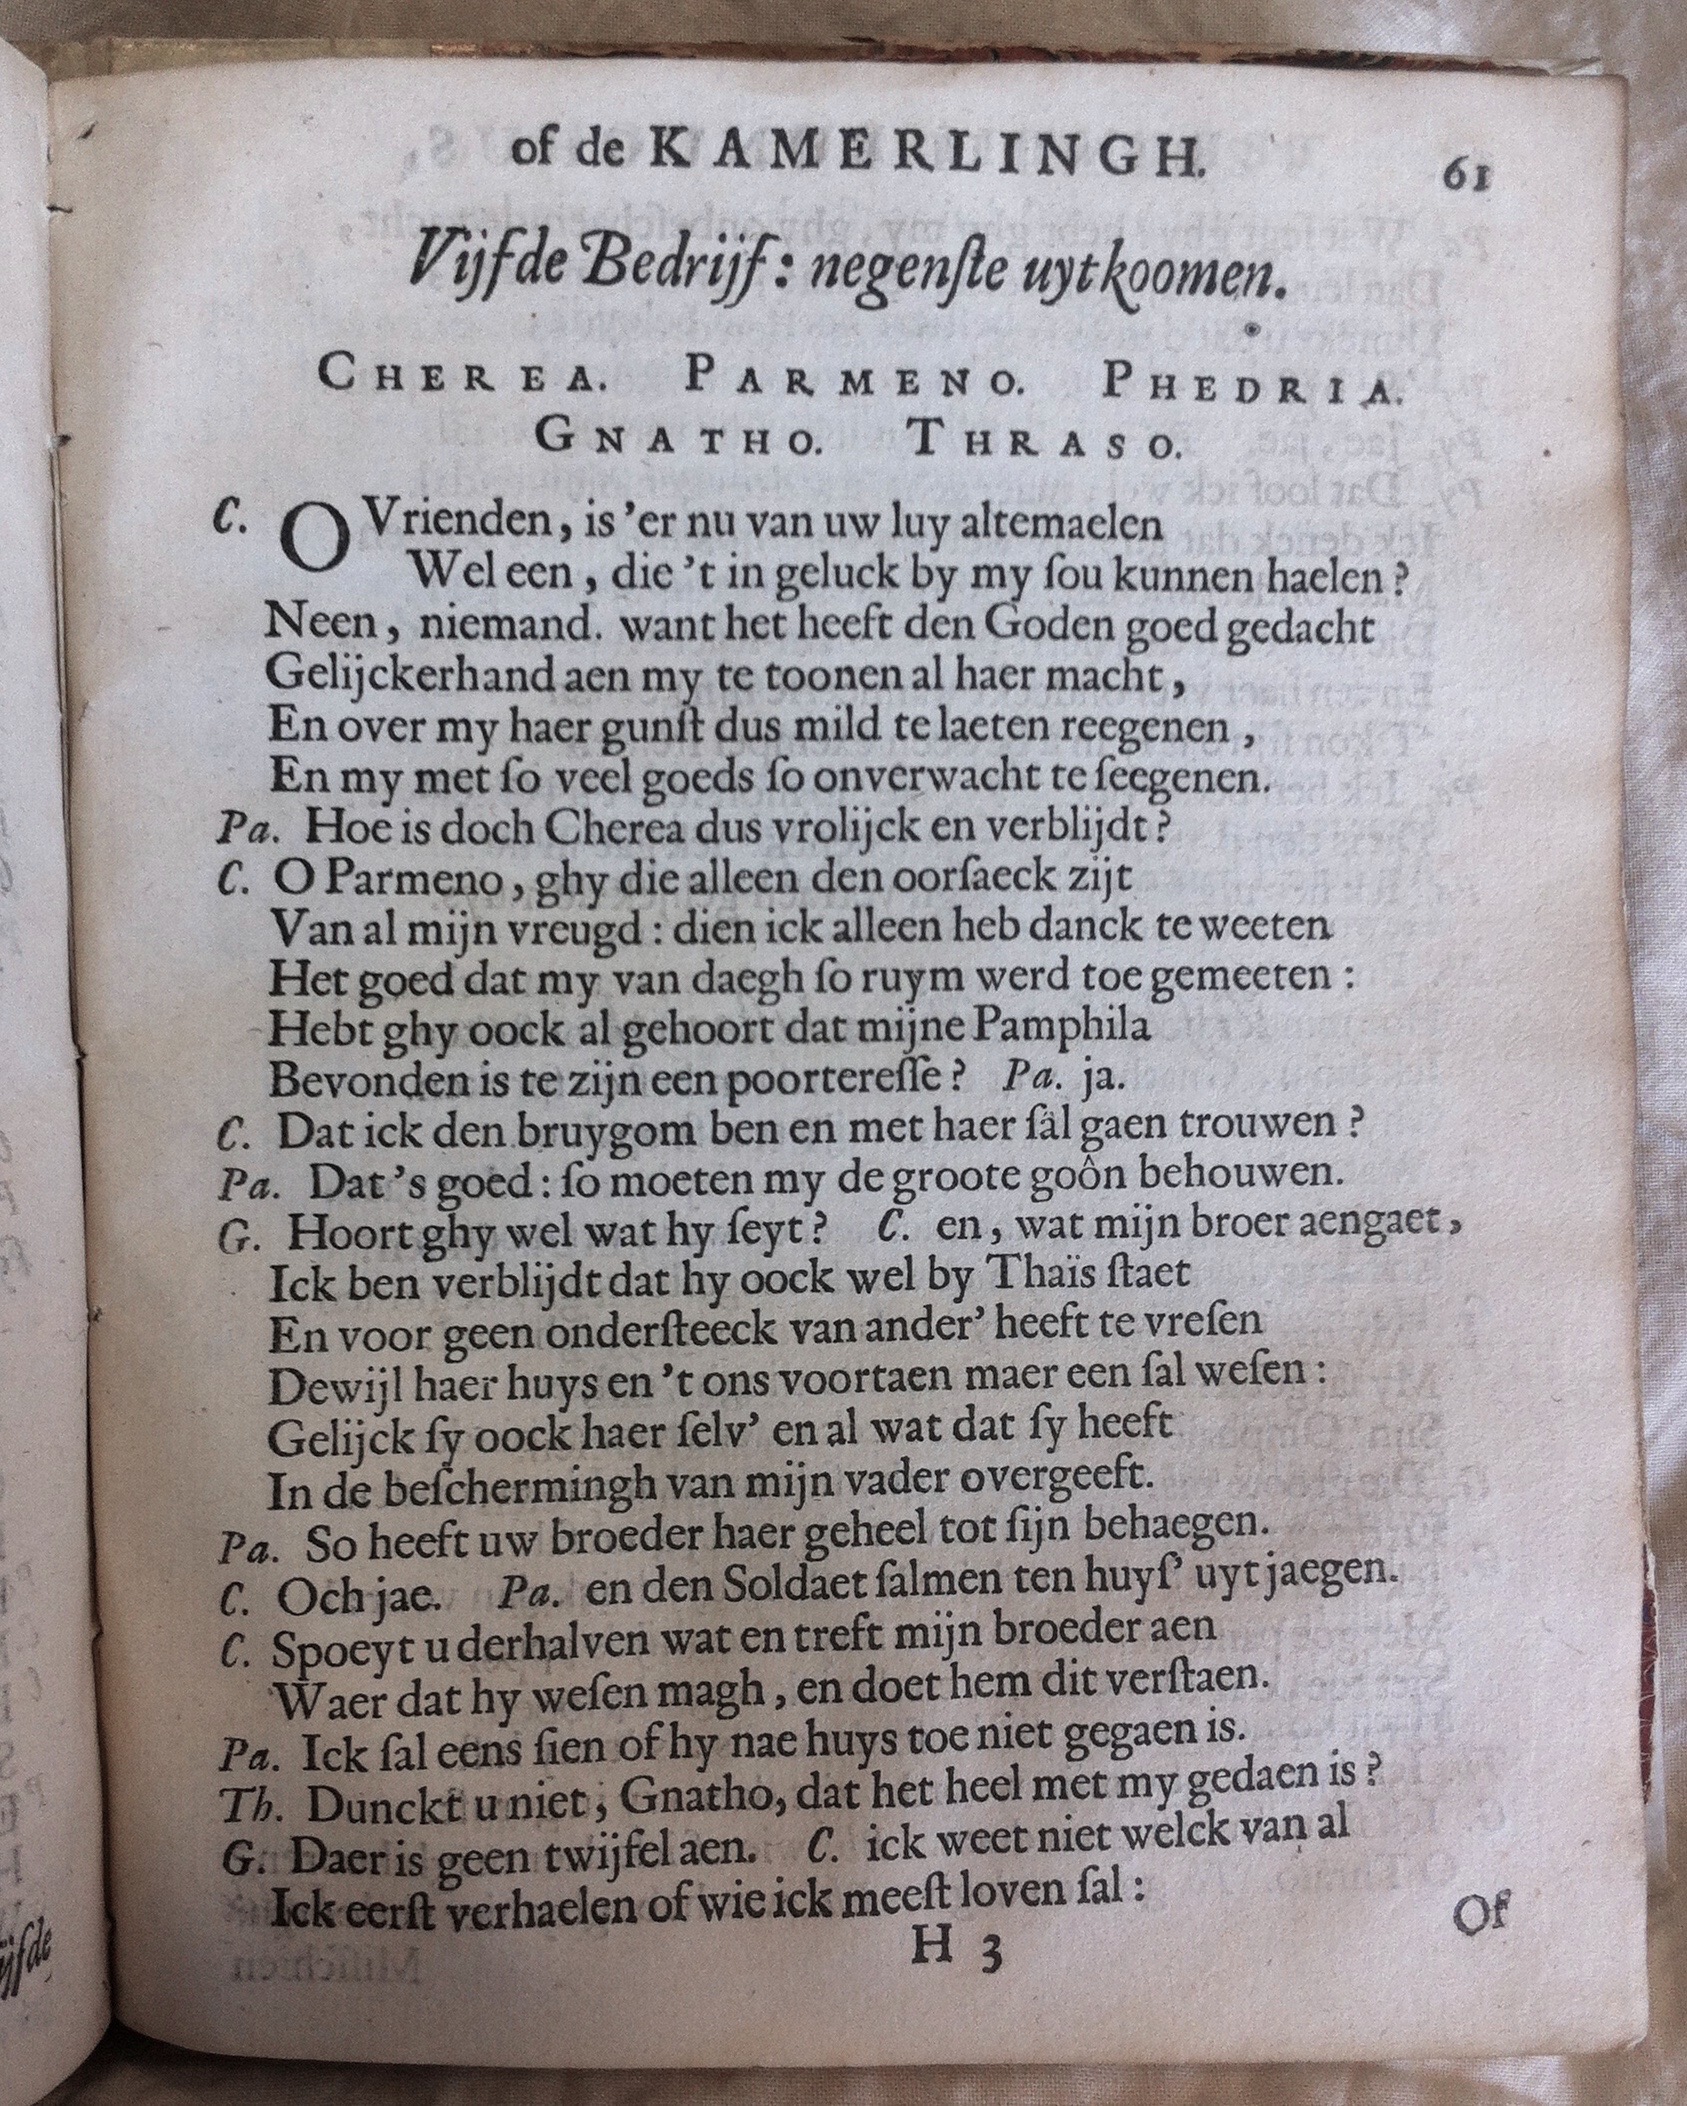 of de KAMERLINGH. 61
Vijfde Bedrijf: negenſte uytkoomen.
CHEREA. PARMENO. PHEDRIA.
GNATHO. THRASO.
C. O Vrienden, is 'er nu van uw luy altemaelen
Wel een, die 't in geluck by my ſou kunnen haelen?
Neen, niemand. want het heeft den Goden goed gedacht
Gelijckerhand aen my te toonen al haer macht,
En over my haer gunſt dus mild te laeten reegenen,
En my met ſo veel goeds ſo onverwacht te ſeegenen.
Pa. Hoe is doch Cherea dus vrolijck en verblijdt?
C. O Parmeno, ghy die alleen den oorſaeck zijt
Van al mijn vreugd: dien ick alleen heb danck te weeten
Het goed dat my van daegh ſo ruym werd toe gemeeten:
Hebt ghy oock al gehoort dat mijne Pamphila
Bevonden is te zijn een poortereſſe? Pa. ja.
C. Dat ick den bruygom ben en met haer ſal gaen trouwen?
Pa. Dat 's goed: ſo moeten my de groote goôn behouwen.
G. Hoort ghy wel wat hy ſeyt? C. en, wat mijn broer aengaet,
Ick ben verblijdt dat hy oock wel by Thaïs ſtaet
En voor geen onderſteeck van ander' heeft te vreſen
Dewijl haer huys en 't ons voortaen maer een ſal weſen:
Gelijck ſy oock haer ſelv' en al wat dat ſy heeft
In de beſchermingh van mijn vader overgeeft.
Pa. So heeft uw broeder haer geheel tot ſijn behaegen.
C. Och jae. Pa. en den Soldaet ſalmen ten huyſ' uyt jaegen.
C. Spoeyt u derhalven wat en treft mijn broeder aen
Waer dat hy weſen magh, en doet hem dit verſtaen.
Pa. Ick ſal eens ſien of hy nae huys toe niet gegaen is.
Th. Dunckt u niet, Gnatho, dat het heel met my gedaen is?
G. Daer is geen twijfel aen. C. ick weet niet welck van al
Ick eerſt verhaelen of wie ick meeſt loven ſal:
H 3 Of
ijfde